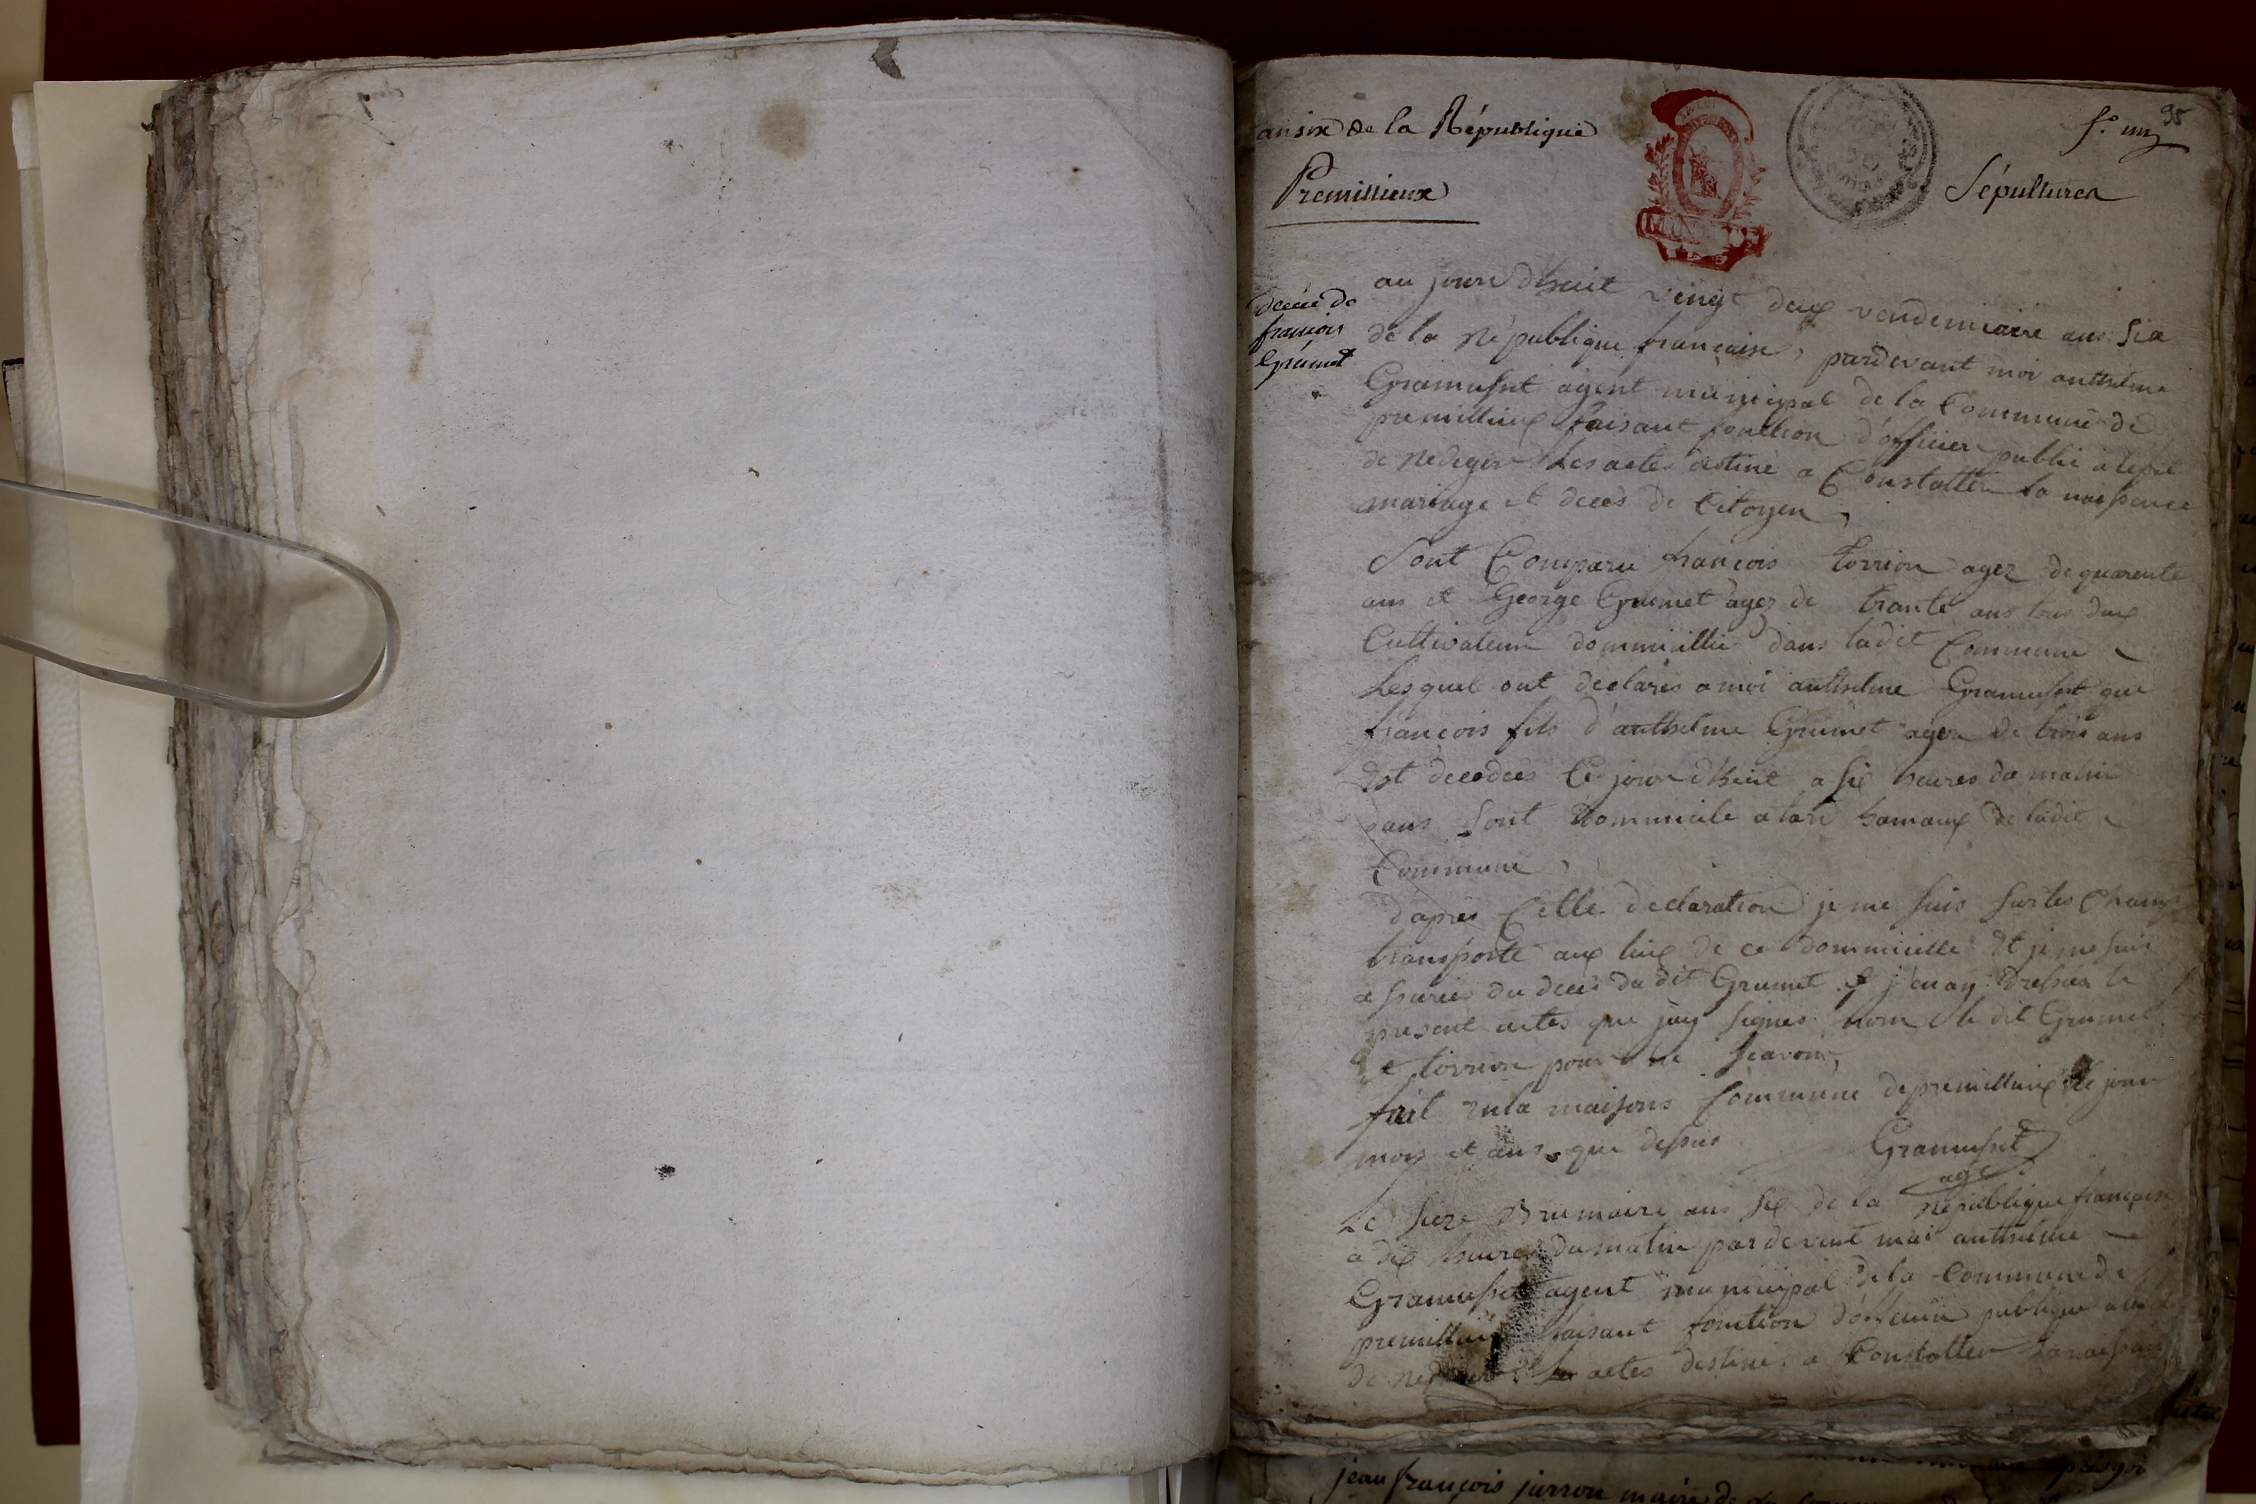 an six de la République
95
f.o un
Premillieux
Sépultures
décés de
francois
Grumet
au jourdhuit vingt deux vendemiaire ans six
de la République francaise, pardevant moi anthelme
Gramusset agent municipal de la Commune de
premillieux faisant fonction d'officier public
de Rediger Les actes destiné a Constatter la naissence
mariage et decés de Citoyen,
Sont Comparu francois Torrion agez de quarente
ans et George Grumet agez de trante ans tous deux
Cultivateur dommicillié dans ladit Commune
Lesquel ont declarés a moi anthelme Gramusset que
francois fils d'anthelme Grumet agez de trois ans
Est decedeés Ce jourdhuit a six heures du matin
dans sont dommicile hamaux de ladit
Commune,
d'aprés Cette declaration je me suis sur les Champ
transporté aux lieux de ce dommicille Et je me suis
assurés du decés du dit Grumet et j'en ay dressés le
present actes que j'ay signés non le dit Grumet
et torrion pour ne scavoir,
fait en la maisons Commune de premillieux Les jour
mois et ans que dessus
Gramusset
age
Le seze Brumaire ans six de la République francaise
a dix heures du matin pardevent moi anthelme
Gramusset agent municipal de la Commune de
premillieux faisant fonction d'officier publique
de Rediger les actes destiné a Constatter La naissance
jean françois jurron maire de la